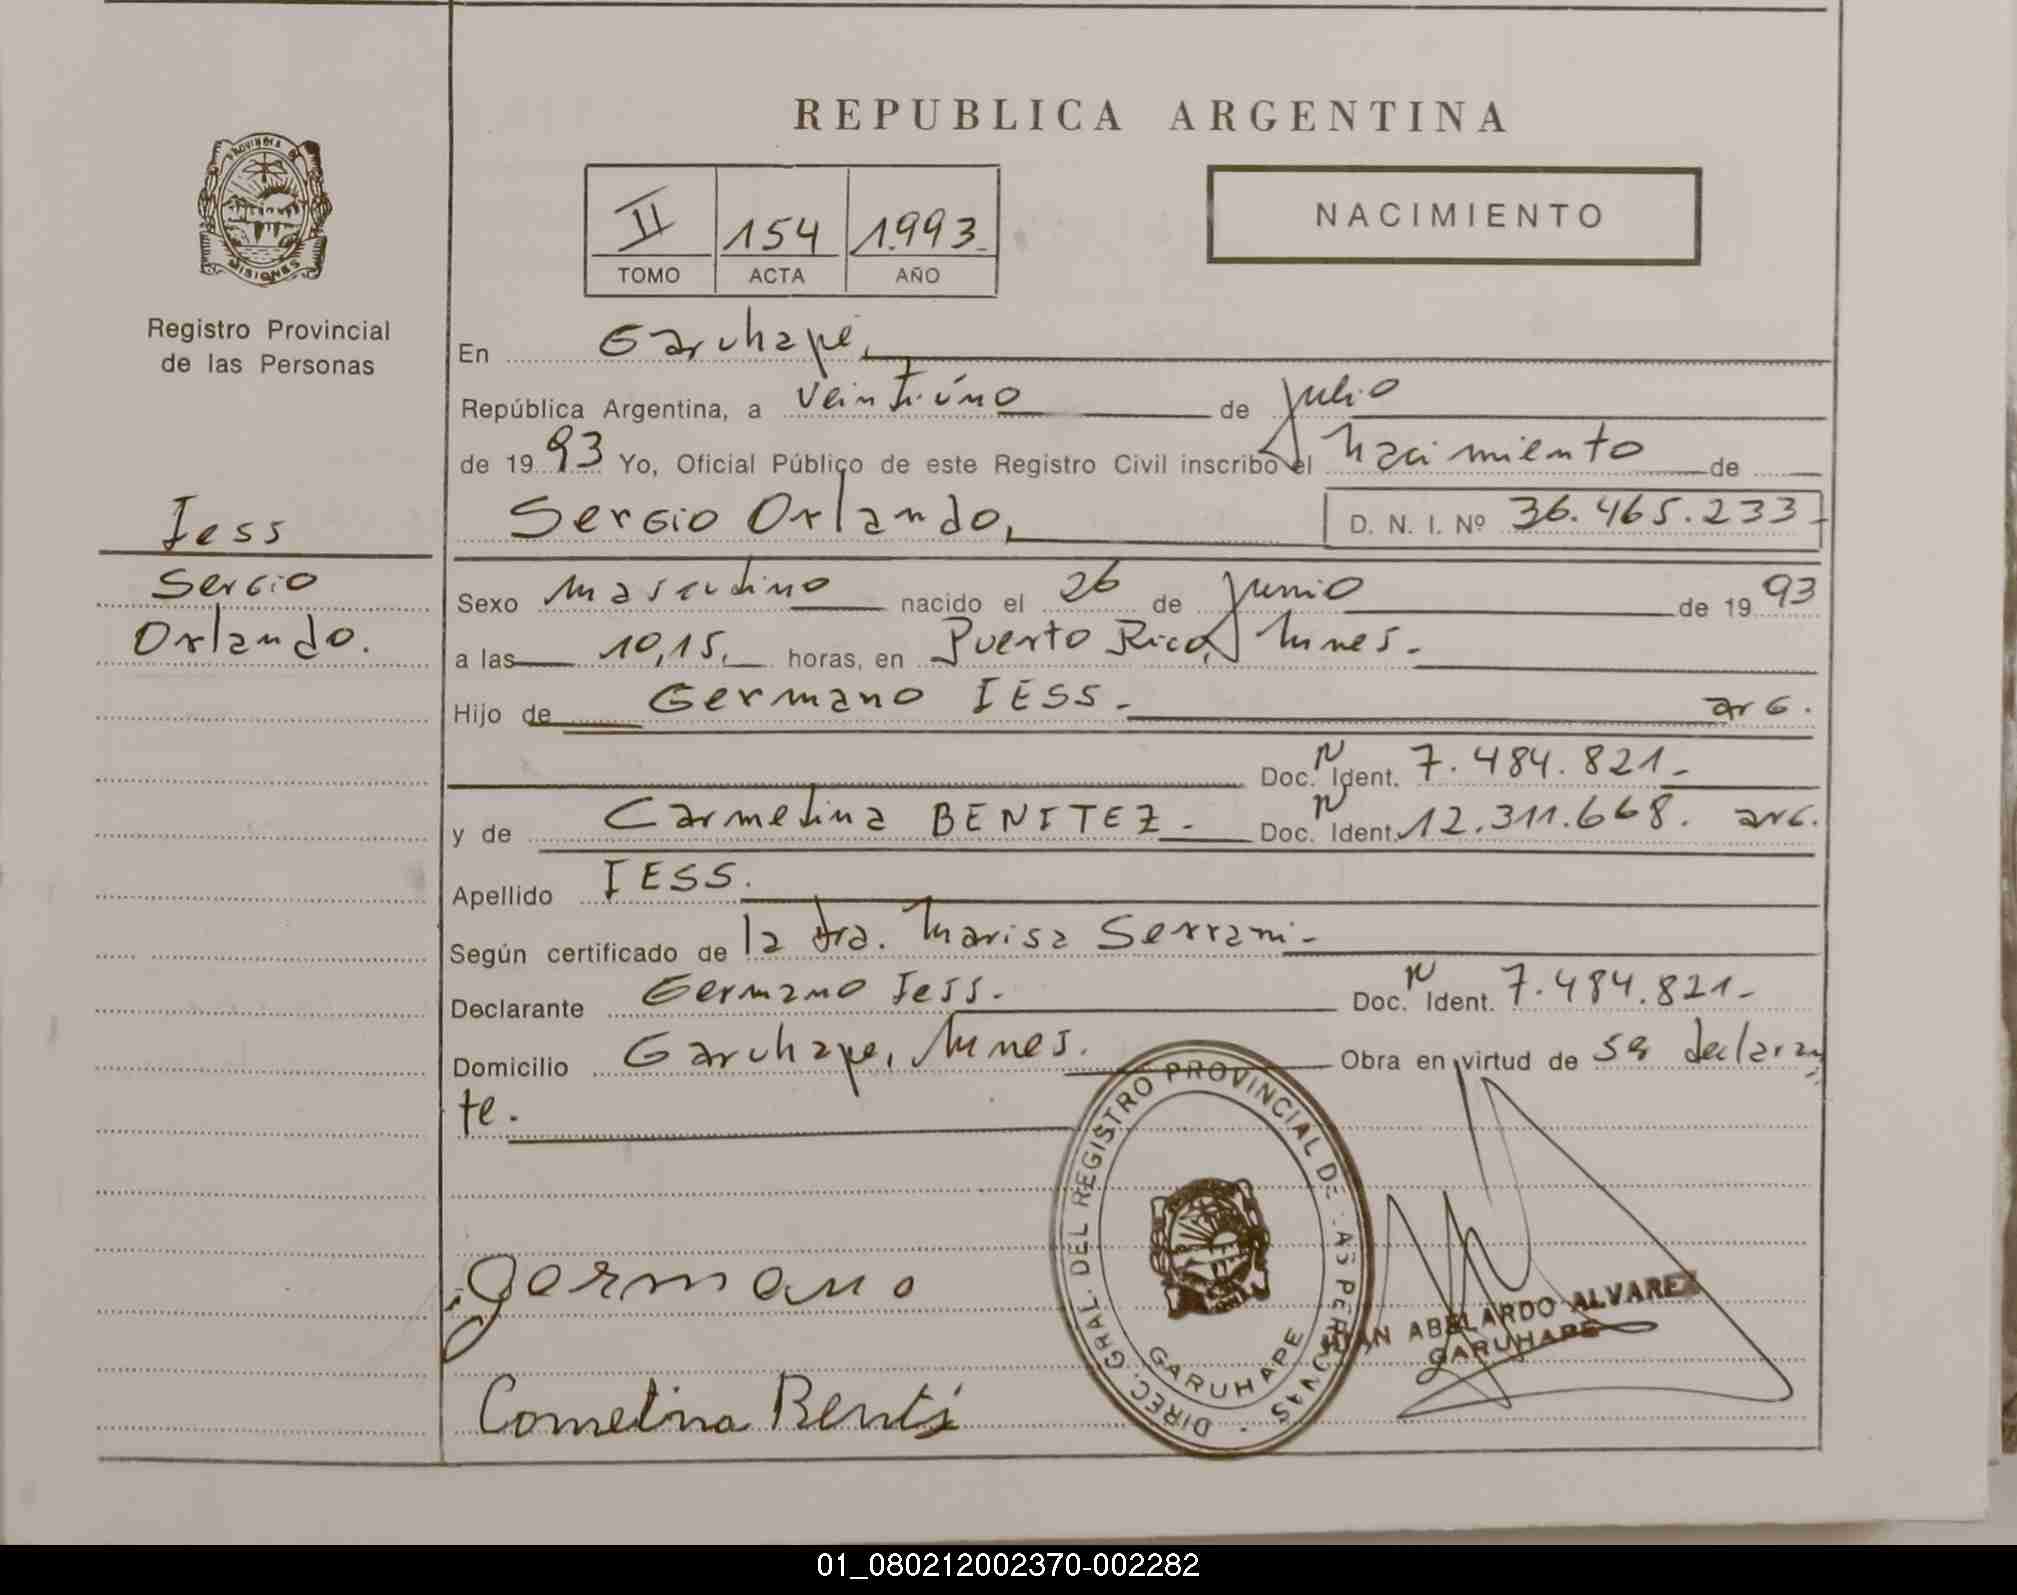 REPUBLICA ARGENTINA
PROVINCIA DE
MISIONES
Registro Provincial
de las Personas
II 154 1993
TOMO ACTA AÑO
NACIMIENTO
En Garuhape,
República Argentina, a veintiúno de julio
de 1993 Yo, Oficial Público de este Registro Civil inscribo el Nacimiento de
Sergio Orlando, D. N. I. Nº 36.465.233-
Iess
Sergio
Orlando.
Sexo Masculino nacido el 26 de junio de 1993
a las 10,15, horas, en Puerto Rico, Mnes.
Hijo de Germano IESS. arg.
Doc. N Ident. 7.484.821-
y de Carmelina BENITEZ- Doc. N Ident. 12.311.668. arg.
Apellido IESS.
Según certificado de la dra. Marisa Serrani-
Declarante Germano Iess. Doc. N Ident. 7.484.821-
Domicilio Garuhape, Mnes. Obra en virtud de ser declaran
te.
germano
DIREC. GRAL. DEL REGISTRO PROVINCIAL DE LAS PERSONAS
GARUHAPE
JUAN ABELARDO ALVAREZ
GARUHAPE
01_080212002370-002282